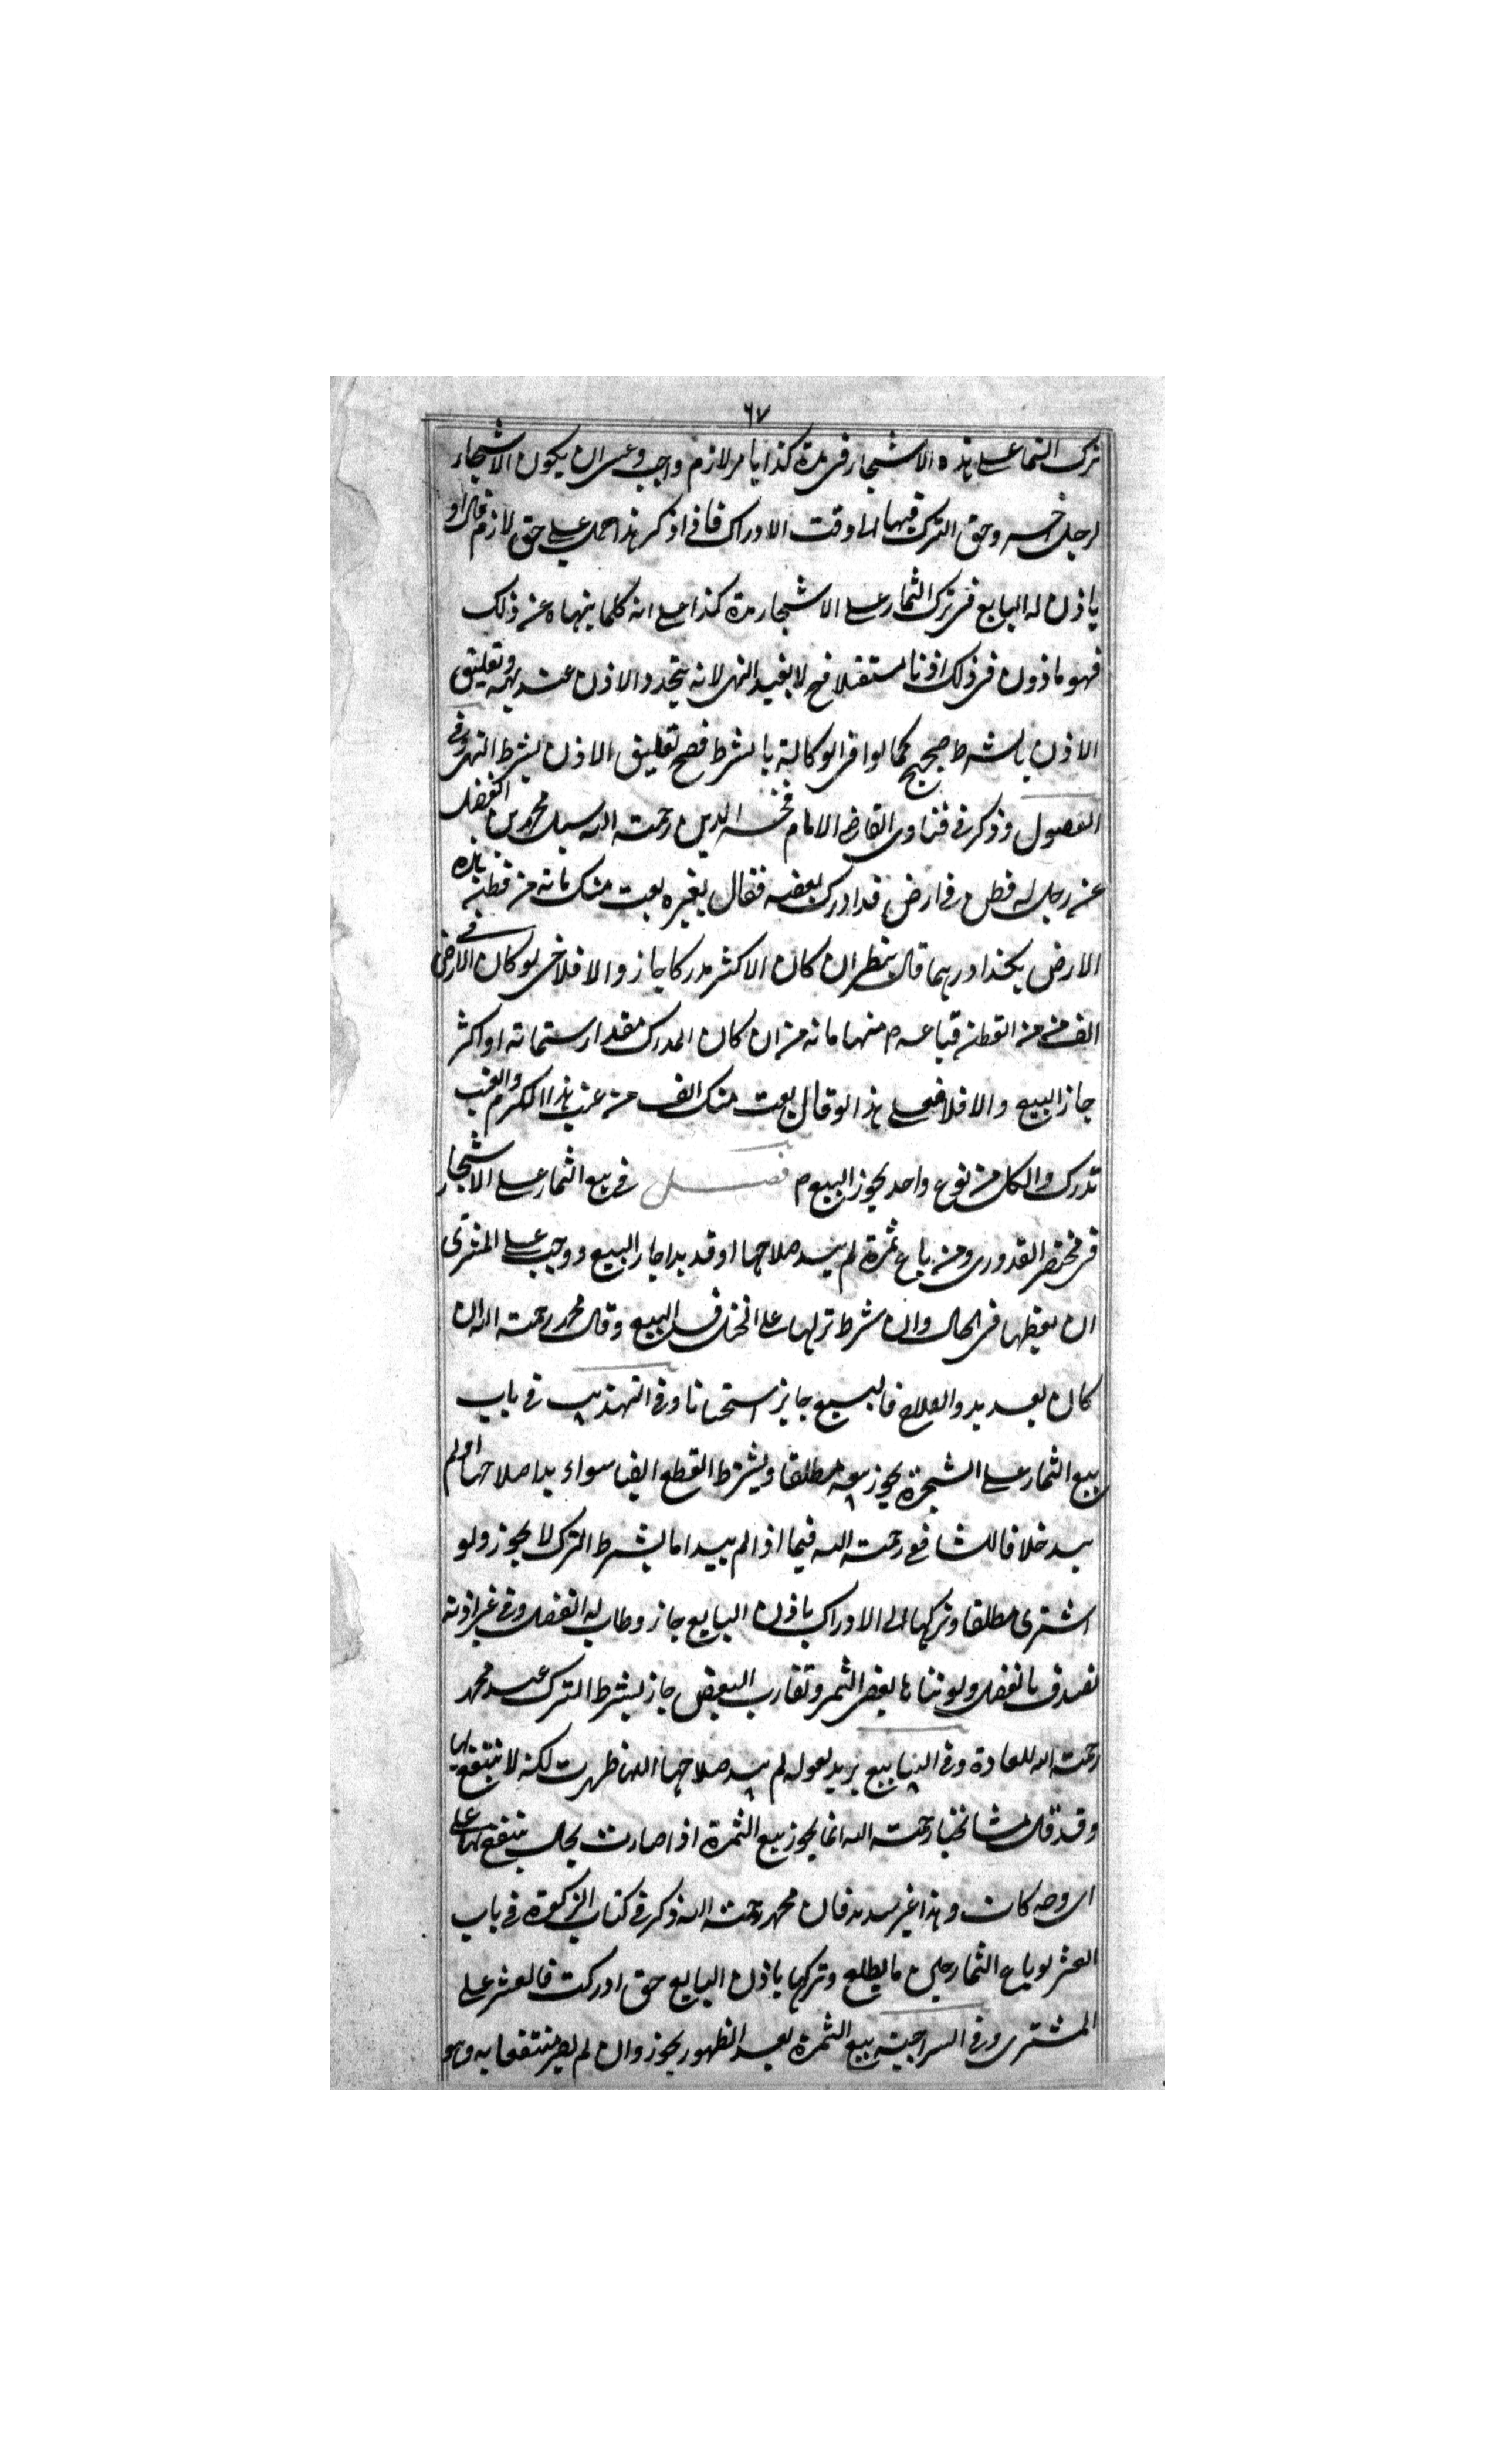 ٦٧
ترك الثمار على هذه الاشجار فى مدة كذا بامر لازم واجب وعسى ان يكون الاشجار
لرجل اخر وحق الترك فيها الى وقت الادراك فاذا ذكر هذا حمل على حق لازم قال او
ياذن له البايع فى ترك الثمار على الاشجار مدة كذا على انه كلما ينهاه عن ذلك
فهو ماذون فى ذلك اذنا مستقلا فح لا يفيد النهى لانه يتجدد الاذن عند نهيه وتعليق
الاذن بالشرط صحيح كما لو اقر الوكالة بالشرط فصح تعليق الاذن بشرط النهى وفى
الفصول وذكر فى فتاوى القاضى الامام فخر الدين رحمته الله سئل محمد بن الفضل
عن رجل له قطن فى ارض قد ادرك بعضه فقال لغيره بعت منك مائة من قطن هذه
الارض بكذا درهما قال ينظر ان كان الاكثر مدركا جاز والا فلا حتى لو كان فى الارض
الف من من القطن فباعه منها مائة من ان كان المدرك مقدار ستمائة او اكثر
جاز البيع والا فلا فعلى هذا لو قال بعت منك الف من عنب هذا الكرم والعنب
تدرك والكل من نوع واحد يجوز البيع م فصل فى بيع الثمار على الاشجار
فى مختصر القدورى ومن باع ثمرة لم يبد صلاحها او قد بدا جاز البيع ووجب على المشترى
ان يقطعها فى الحال وان شرط تركها على النخل فسد البيع وقال محمد رحمته الله ان
كان بعد بدو الصلاح فالبيع جايز استحسانا وفى التهذيب فى باب
بيع الثمار على الشجرة يجوز بيعه مطلقا وبشرط القطع ايضا سواء بدا صلاحها او لم
يبد خلافا للشافعى رحمته الله فيما اذا لم يبد اما بشرط الترك لا يجوز ولو
اشترى مطلقا وتركها الى الادراك باذن البايع جاز وطاب له الفضل وفى غير اذنه
تصدق بالفضل ولو تناها بعض الثمر وتقارب البعض جاز بشرط الترك عند محمد
رحمته الله للعادة وفى الينابيع يريد بقوله لم يبد صلاحها انها ظهرت لكنه لا ينتفع بها
وقد قال مشائخنا رحمته الله انما يجوز بيع الثمرة اذا صارت بحال ينتفع بها على
اى وجه كان وهذا غير سديد فان محمد رحمته الله ذكر فى كتاب الزكوة فى باب
العشر لو باع الثمار حين ما يطلع وتركها باذن البايع حتى ادركت فالعشر على
المشترى وفى السراجية بيع الثمرة بعد الظهور يجوز وان لم يصر منتفعا به وهو